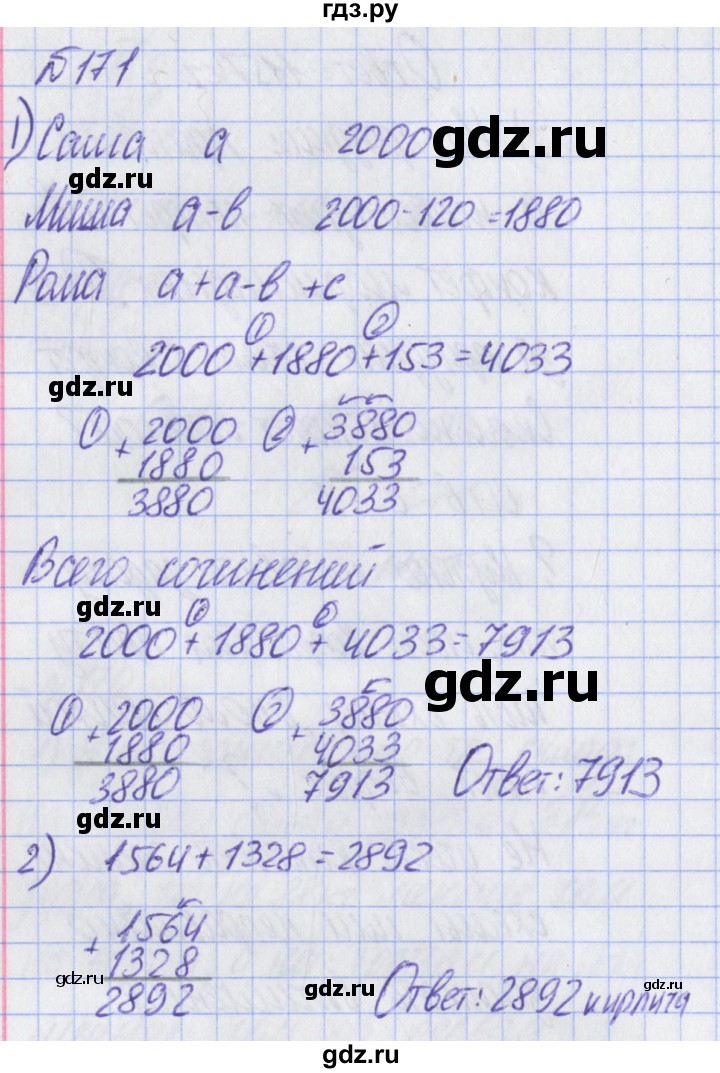 гдз.ру
№171
1) Саша a 2000
gdz.ru
gdz.ru
Миша a-в 2000-120=1880
Рома a+a-в+c
① ②
2000+1880+153=4033
gdz.ru
① + 2000 ② + 3880
1880 153
3880 4033
Всего сочинений
gdz.ru
① ②
2000+1880+4033=7913
gdz.ru
① + 2000 ② + 3880
1880 4033
3880 7913
Ответ: 7913
2) 1564+1328=2892
+ 1564
1328
gdz.ru
gdz.ru
2892
Ответ: 2892 кирпича
gdz.ru